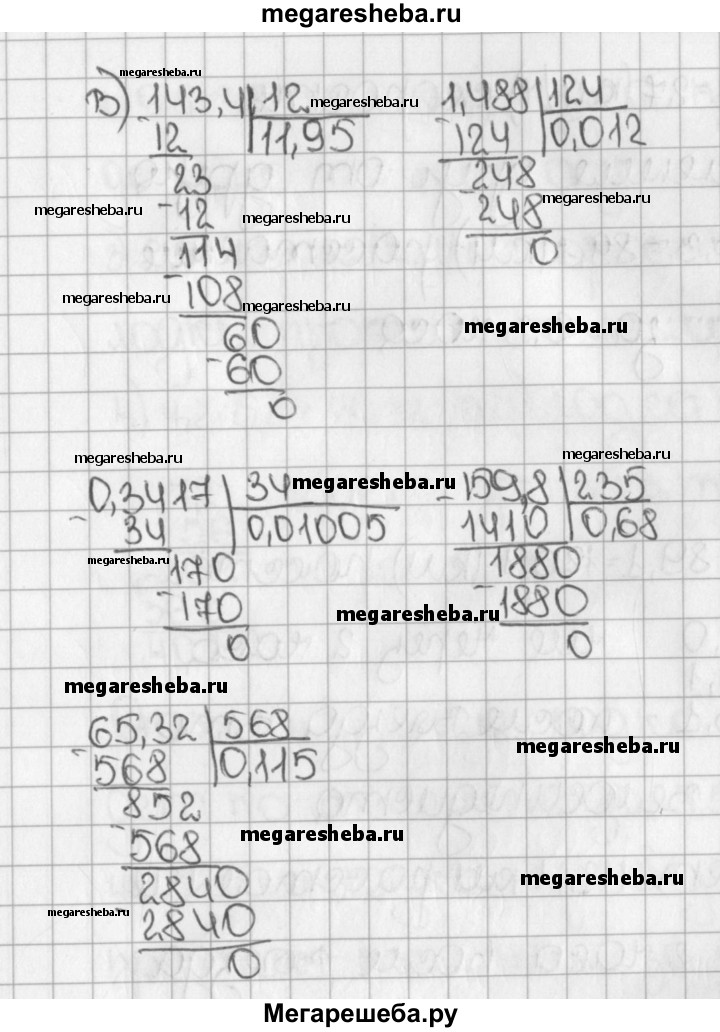 megaresheba.ru
megaresheba.ru
В) 143,4 | 12 megaresheba.ru
- 12 | 11,95
23
megaresheba.ru - 12 megaresheba.ru
114
megaresheba.ru - 108 megaresheba.ru
60
- 60
0
1,488 | 124
- 124 | 0,012
248
- 248 megaresheba.ru
0
megaresheba.ru
megaresheba.ru
0,3417 | 34 megaresheba.ru
- 34 | 0,01005
megaresheba.ru 170
- 170
0
megaresheba.ru
- 159,8 | 235
1410 | 0,68
1880
megaresheba.ru - 1880
0
megaresheba.ru
65,32 | 568
- 568 | 0,115
852
- 568 megaresheba.ru
2840
megaresheba.ru - 2840
0
megaresheba.ru
megaresheba.ru
Мегарешеба.ру